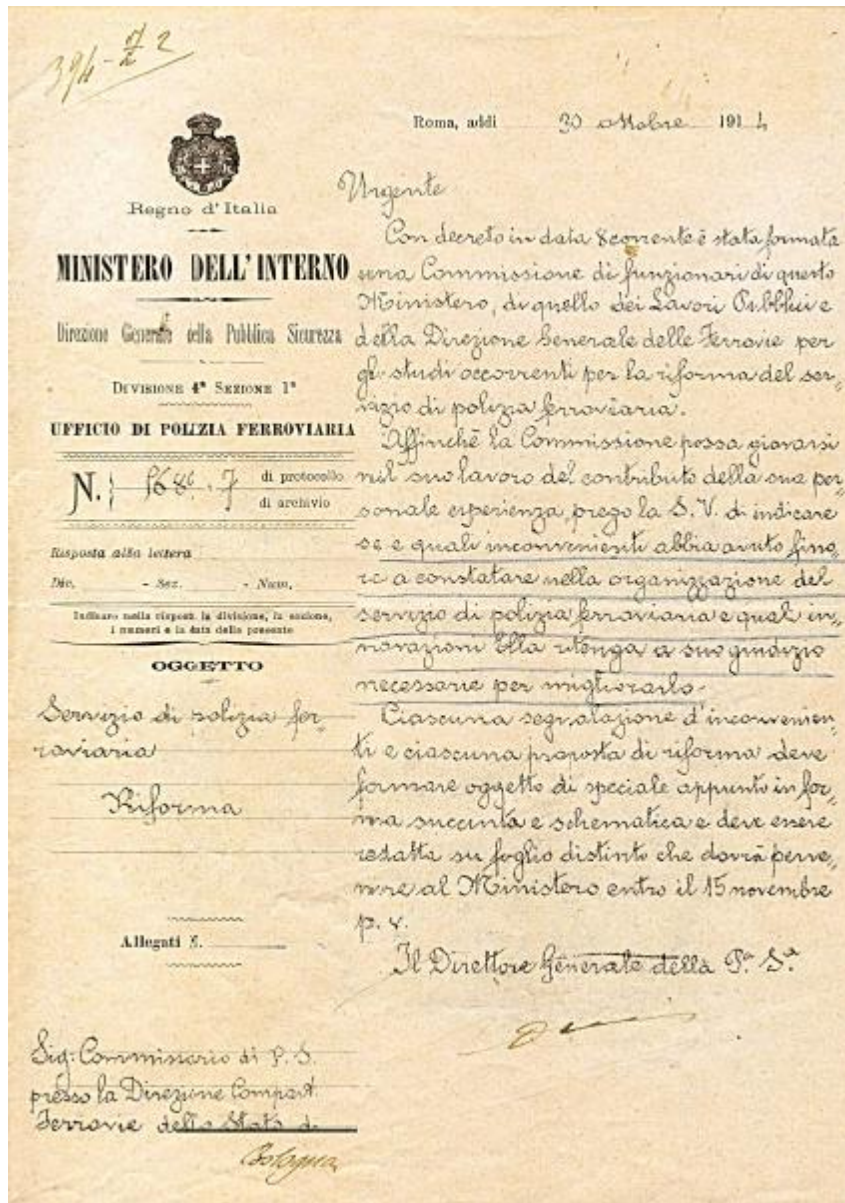 394-
Roma, addì 30 ottobre 1914
Regno d'Italia
MINISTERO DELL'INTERNO
Direzione Generale della Pubblica Sicurezza
DIVISIONE 4ª SEZIONE 1ª
UFFICIO DI POLIZIA FERROVIARIA
N. di protocollo
di archivio
Risposta alla lettera
Div. - Sez. - Num.
Indicare nella risposta la divisione, la sezione,
i numeri e la data della presente
OGGETTO
Servizio di polizia fer-
roviaria
Riforma
Allegati N.
Sig: Commissario di P. S.
presso la Direzione Compart.
Ferrovie dello Stato di
Bologna
Urgente
Con decreto in data 8 corrente è stata formata
una Commissione di funzionari di questo
Ministero, di quello dei Lavori Pubblici e
della Direzione Generale delle Ferrovie per
gli studi occorrenti per la riforma del ser-
vizio di polizia ferroviaria.
Affinchè la Commissione possa giovarsi
nel suo lavoro del contributo della sua per-
sonale esperienza, prego la S. V. di indicare
se e quali inconvenienti abbia avuto fino-
ra a constatare nella organizzazione del
servizio di polizia ferroviaria e quali in-
novazioni Ella ritenga a suo giudizio
necessarie per migliorarlo.
Ciascuna segnalazione d'inconvenien-
ti e ciascuna proposta di riforma deve
formare oggetto di speciale appunto in for-
ma succinta e schematica e deve essere
redatta su foglio distinto che dovrà perve-
nire al Ministero entro il 15 novembre
p. v.
Il Direttore Generale della P.ª S.ª